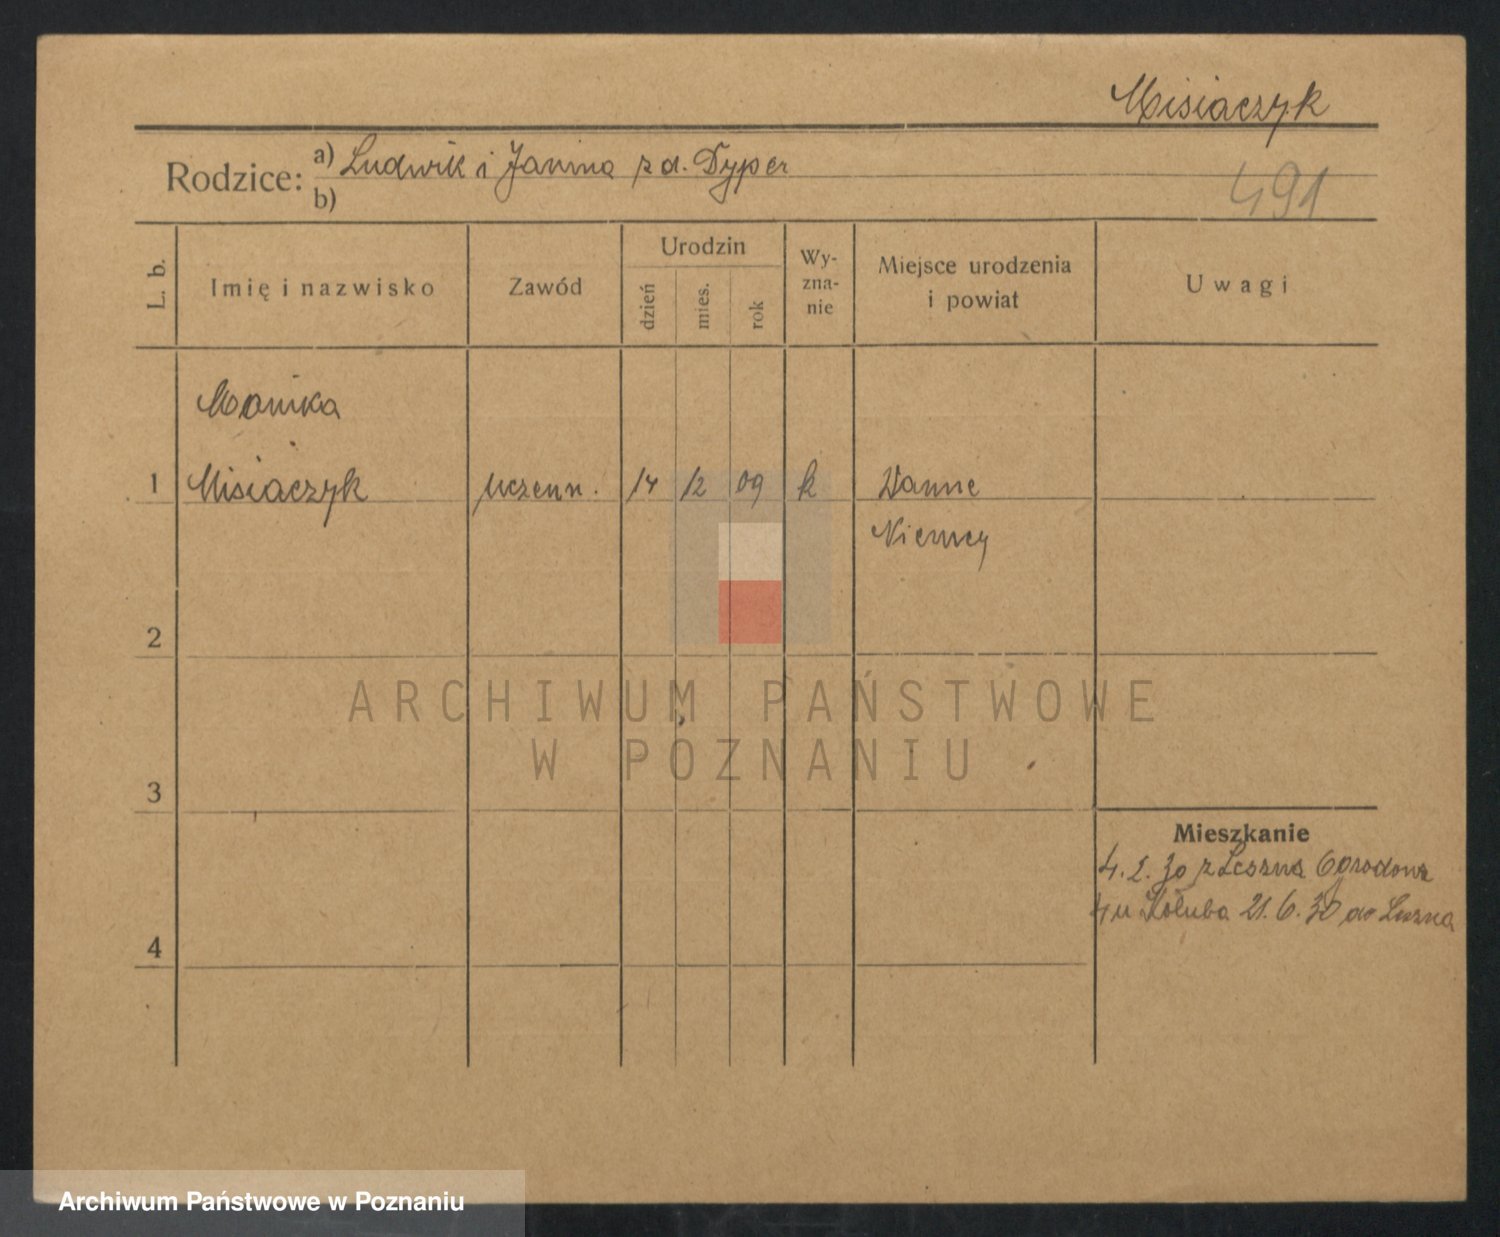 Misiaczyk
Rodzice: a) Ludwik i Janina z d. Dyper
b)
491
L. b.
Imię i nazwisko
Zawód
Urodzin
dzień
mies.
rok
Wy-
zna-
nie
Miejsce urodzenia
i powiat
Uwagi
Monika
1 Misiaczyk uczenn. 14 12 09 k Wanne
Niemcy
2
ARCHIWUM PAŃSTWOWE
W POZNANIU
3
Mieszkanie
4. 2. 30 z Leszna Ogrodowa
4 u Kołuba 21. 6. 30 do Leszna
4
Archiwum Państwowe w Poznaniu